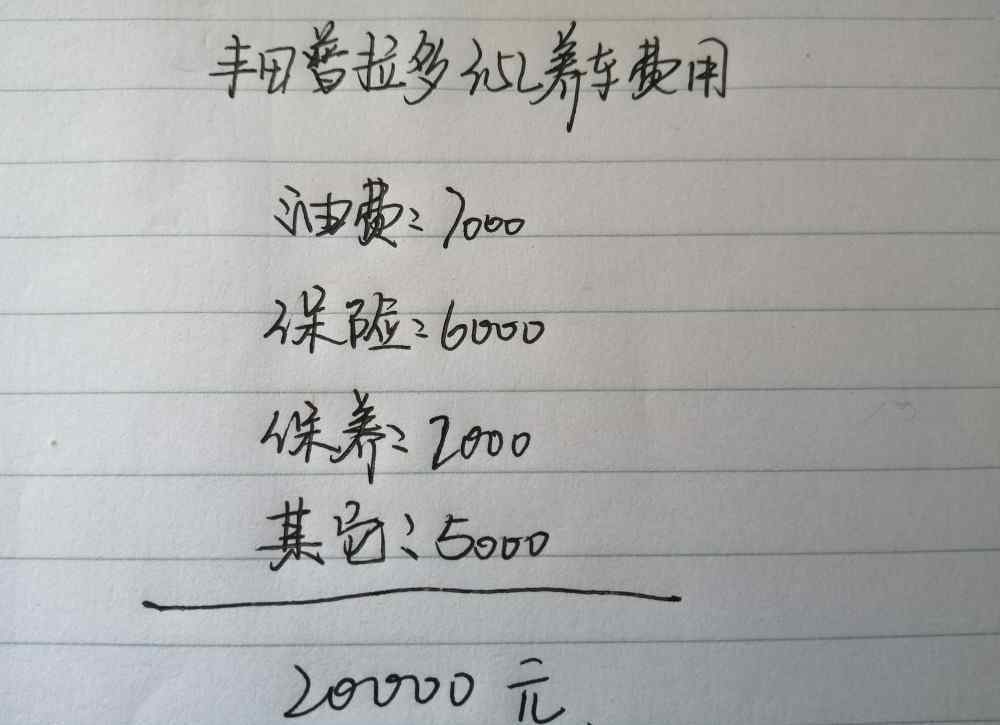 丰田普拉多3.5L养车费用
油费:7000
保险:6000
保养:2000
其它:5000
20000元